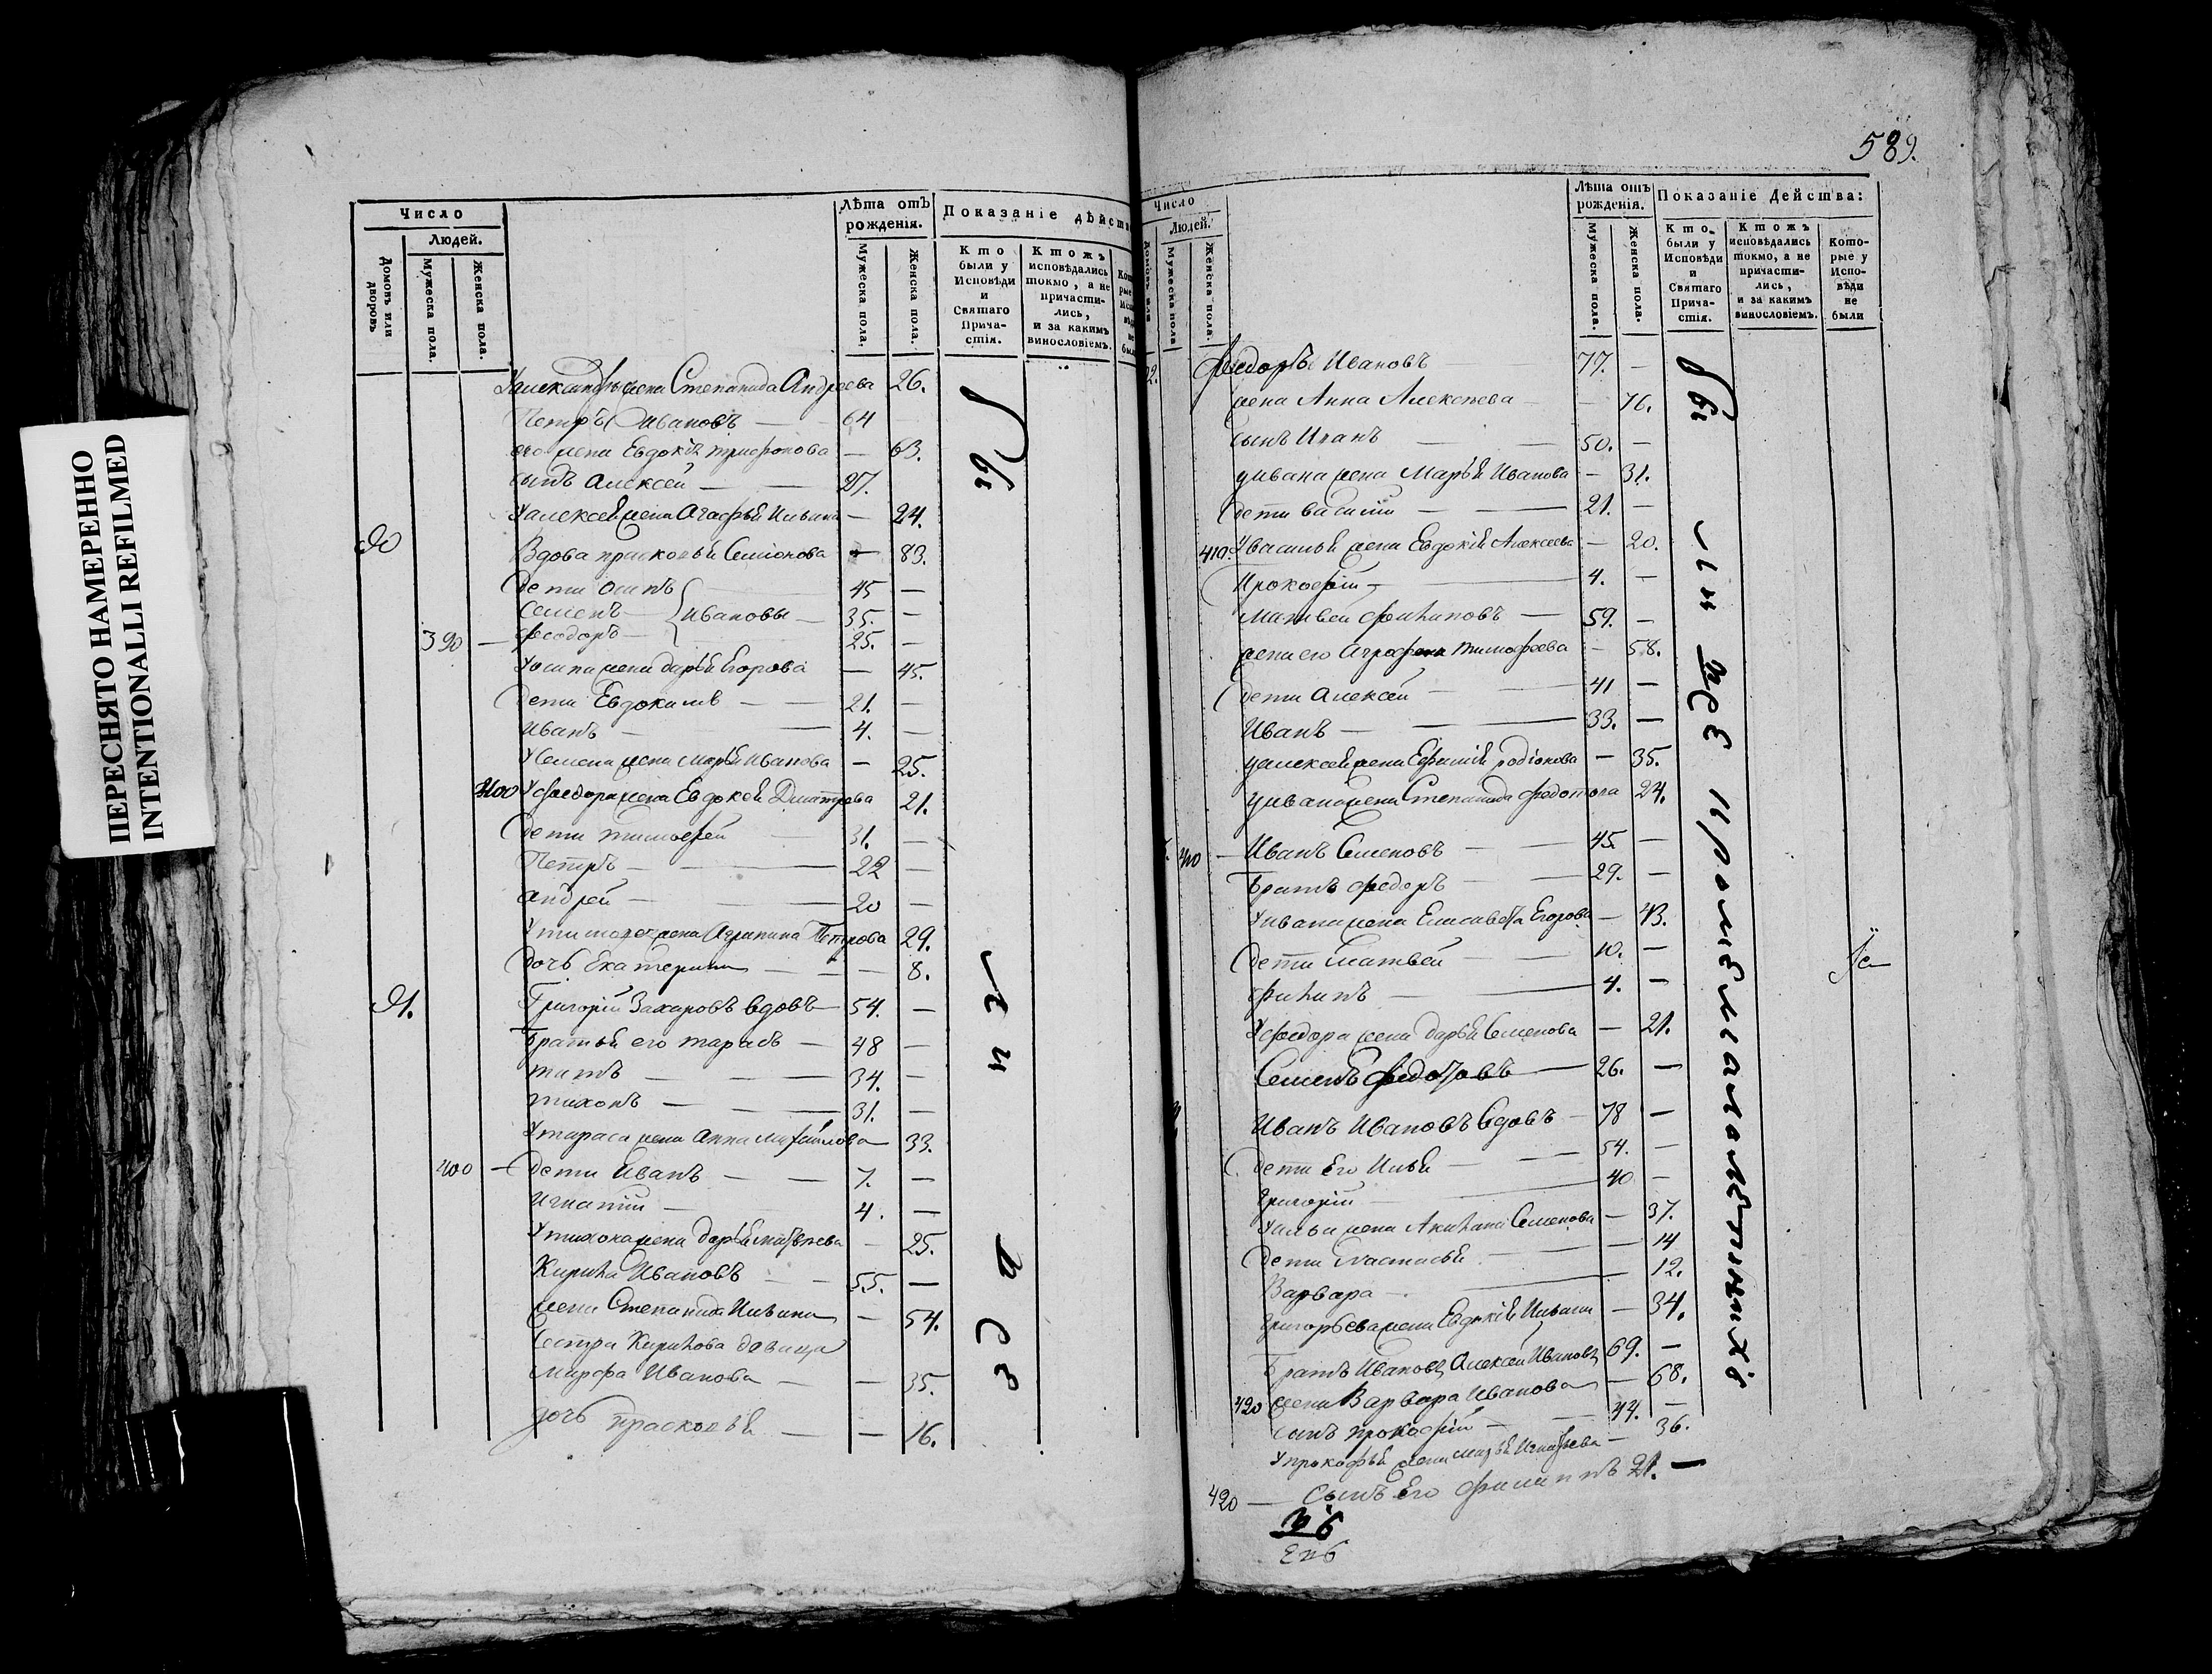 ПЕРЕСНЯТО НАМЕРЕННО
INTENTIONALLI REFILMED
Число
Людей.
Домовъ или дворовъ
Мужеска пола.
Женска пола.
Лѣта отъ рожденія.
Мужеска пола.
Женска пола.
Показаніе дѣйств
Кто были у Исповѣди и Святаго Прича-стія.
Ктожъ исповѣдались токмо, а не причасти-лись, и за какимъ винословіемъ.
У александра жена Степанида Андреева 26.
Петръ Ивановъ — 64
его жена Евдокія трифонова — 63.
сынъ алексей — 27.
У алексея жена Агафья Ильина — 24.
90
Вдова прасковья Семіонова — 83.
дети осипъ 45 —
Семенъ Ивановы 35. —
390 — феодоръ 25. —
У осипа жена дарья Егорова — 45.
дети Евдокимъ — 21. —
Иванъ — 4. —
У Семена жена марья Иванова — 25.
400 У феодора жена Евдокея Дмитрева 21.
дети тимофей 31. —
Петръ — 22 —
андрей — 20 —
У тимофея жена Агрипина Петрова 29.
дочь Екатерина — 8.
91. Григорій Захаровъ вдовъ 54. —
Братья его тарасъ — 48 —
титъ — 34. —
тихонъ — 31. —
У тараса жена анна михайлова 33.
400 — дети Иванъ — 7. —
Игнатій — 4. —
У тихона жена дарья матвеева — 25.
Кирила Ивановъ — 55. —
жена Степанида Ильина — 54.
сестра Кирилова девица
марфа Иванова — 35.
дочь прасковья — 16.
589.
Число
Людей.
Мужеска пола
Женска пола.
Лѣта отъ рожденія.
Мужеска пола.
Женска пола.
Показаніе Действа:
Кто были у Исповѣди и Святаго Прича-стія.
Ктожъ исповѣдались токмо, а не причасти-лись, и за какимъ винословіемъ.
Кото-рые у Испо-вѣди не были
Федоръ Ивановъ 77. —
жена Анна Алексеева — 76.
сынъ Иванъ — 50. —
у ивана жена Марья Иванова — 31.
дети василій — 21. —
410. У василья жена Евдокія Алексеева — 20.
Прокофій — 4. —
матвей филиповъ — 59. —
жена его Аграфена тимофеева — 58.
дети алексей — 41 —
Иванъ — 33. —
у алексея жена Ефимія родіонова — 35.
у ивана жена Степанида федотова 24.
410 — Иванъ Семеновъ — 45. —
Братъ федоръ — 29. —
У ивана жена Елисавета Егорова — 43.
дети матвей — 10. —
филипъ — 4. —
У федора жена дарья Семенова — 21.
Семенъ федотовъ — 26. —
Иванъ Ивановъ вдовъ — 78 —
дети Его Илья — 54. —
Григорій — 40 —
У ильи жена Акилина Семенова — 37.
дети настасья — 14
Варвара — 12.
Григорьева жена Евдокія Ильина — 34.
Братъ Ивановъ Алексей Ивановъ 69. —
420 жена Варвара Иванова — 68.
сынъ прокофій — 44. —
У прокофья жена марья Игнатьева — 36.
420 — сынъ Его филиппъ 21. —